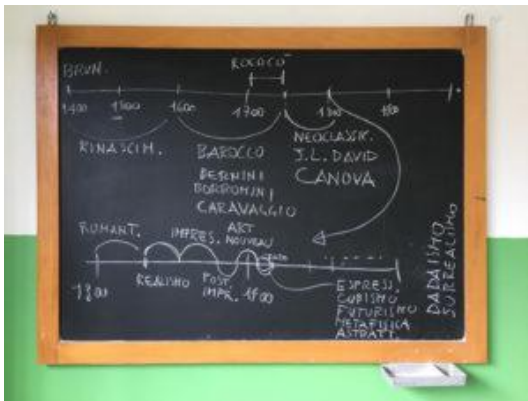 ROCOCO'
BRUN.
1400 1500 1600 1700 1800
RINASCIM.
BAROCCO
BERNINI
BORROMINI
CARAVAGGIO
NEOCLASSIK.
J.L. DAVID
CANOVA
ROMANT.
IMPRES.
ART
NOUVEAU
1800
REALISMO
POST
IMPR.
1900
ESPRESS.
CUBISMO
FUTURISMO
METAFISICA
ASTRATT.
DADAISMO
SURREALISMO